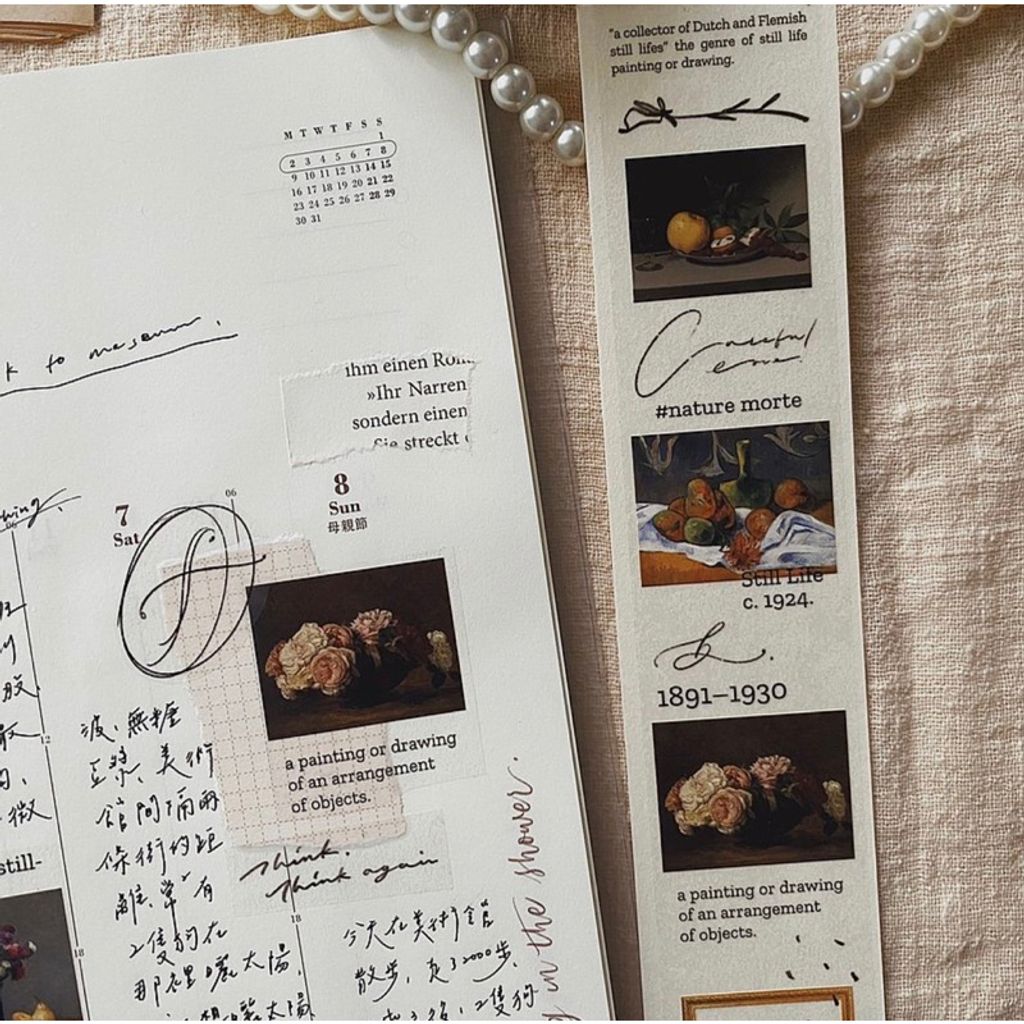 M T W T F S S
1
2 3 4 5 6 7 8
9 10 11 12 13 14 15
16 17 18 19 20 21 22
23 24 25 26 27 28 29
30 31
to museum.
ihm einen
»Ihr Narren
sondern einen
Sie streckt
7
Sat
06
8
Sun
母親節
a painting or drawing
of an arrangement
of objects.
think.
think again
無糖
豆漿、美術
館間隔兩
條街的距
離、常有
2隻狗在
那裡曬太陽,
18
今天在美術館
散步,走了2000步,
2隻狗
in the shower.
12
still-
18
"a collector of Dutch and Flemish
still lifes" the genre of still life
painting or drawing.
#nature morte
Still Life
c. 1924.
1891–1930
a painting or drawing
of an arrangement
of objects.